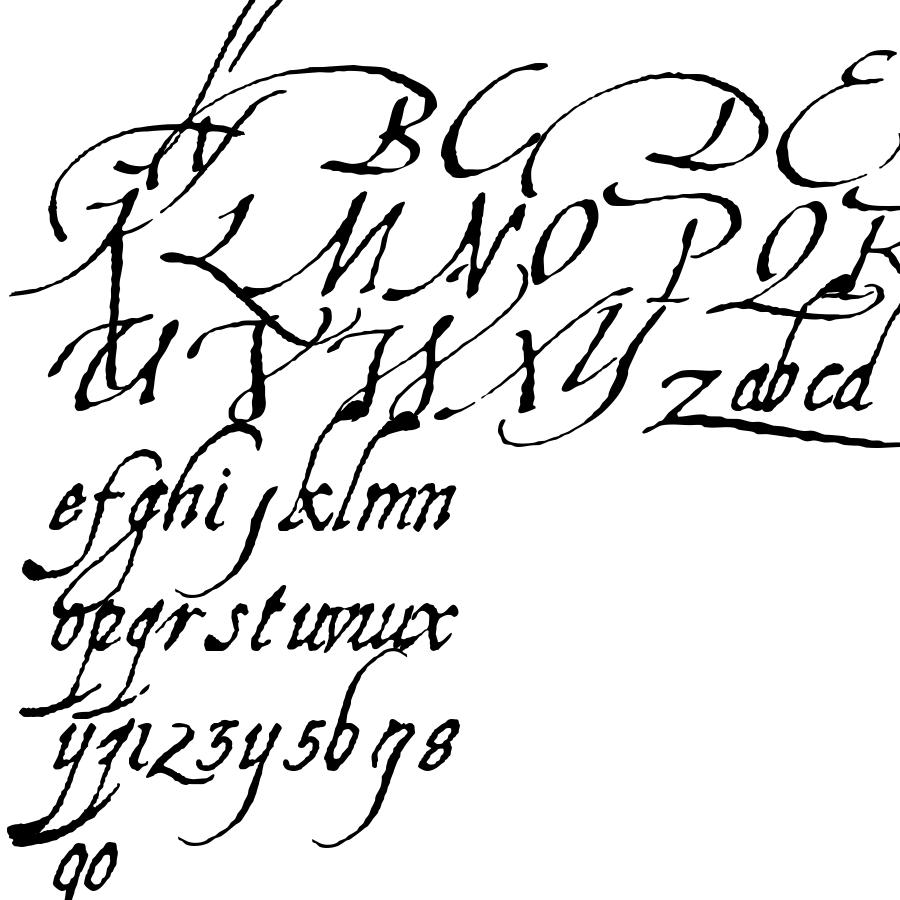 A B C D E
K L M N O P Q R
U V W X Y Z a b c d
e f g h i j k l m n
o p q r s t u v w x
y z 1 2 3 4 5 6 7 8
9 0